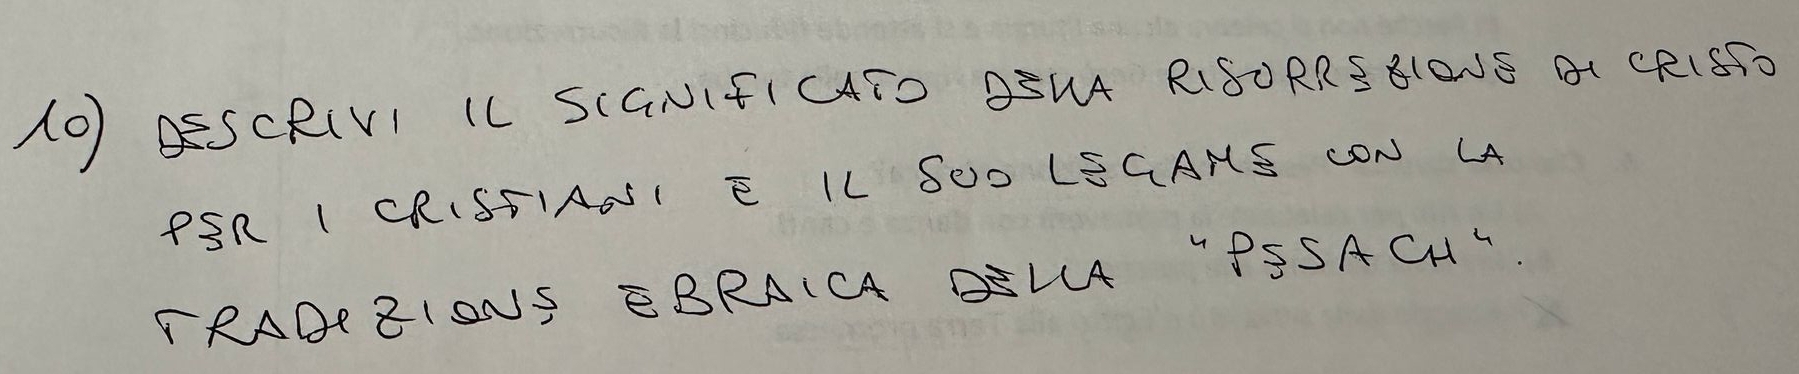 10) DESCRIVI IL SIGNIFICATO DELLA RISORREZIONE DI CRISTO
PER I CRISTIANI E IL SUO LEGAME CON LA
TRADIZIONE EBRAICA DELLA "PESACH".